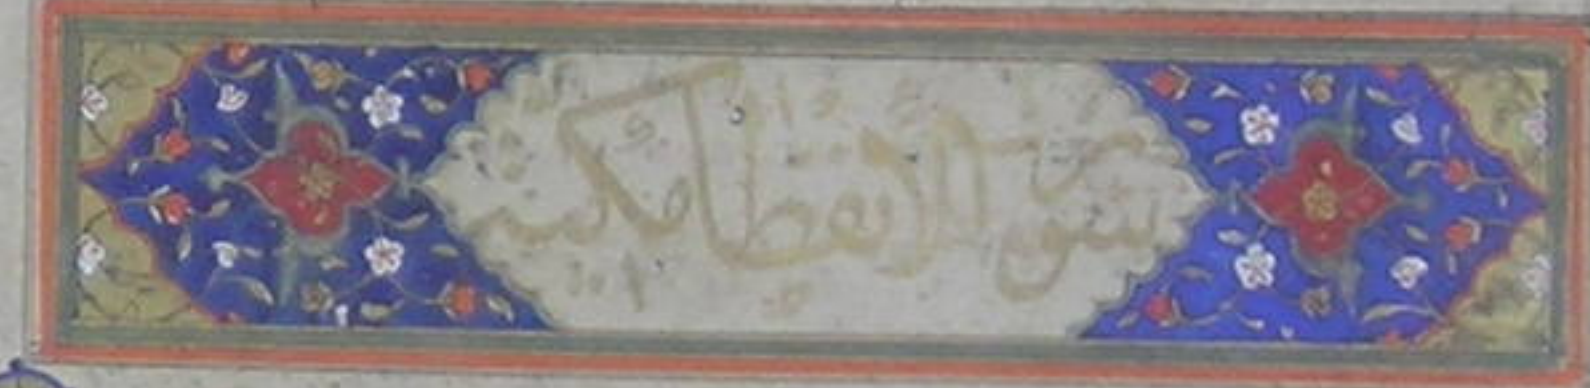 سورة الانفطار مكية